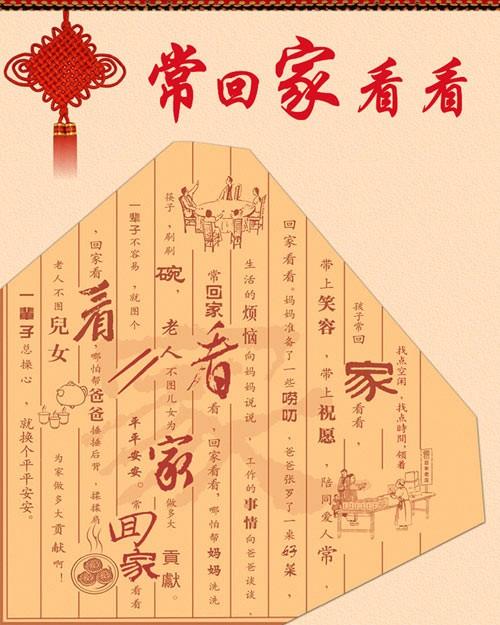 常回家看看
找点空闲，找点時間，领着
孩子常回家看看，
带上笑容，带上祝愿，陪同爱人常，
回家看看。妈妈准备了一些唠叨，爸爸张罗了一桌好菜，
生活的烦恼向妈妈说说，工作的事情向爸爸谈谈，
常回家看看，回家看看，哪怕帮妈妈洗洗
筷子，刷刷碗，老人不图儿女为家做多大貢獻。
一輩子不容易，就图个平平安安。常回家看看
，回家看看，哪怕帮爸爸捶捶后背，揉揉肩
老人不图兒女为家做多大贡献啊！
一輩子总操心，就换个平平安安。